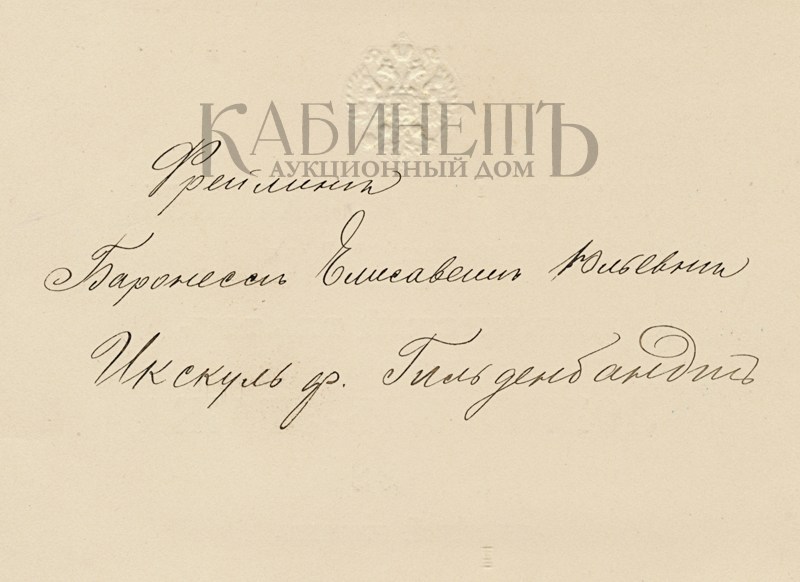 КАБИНЕТЪ
АУКЦИОННЫЙ ДОМ
Фрейлинѣ
Баронессѣ Елисаветѣ Юльевнѣ
Икскуль ф. Гильденбандтъ